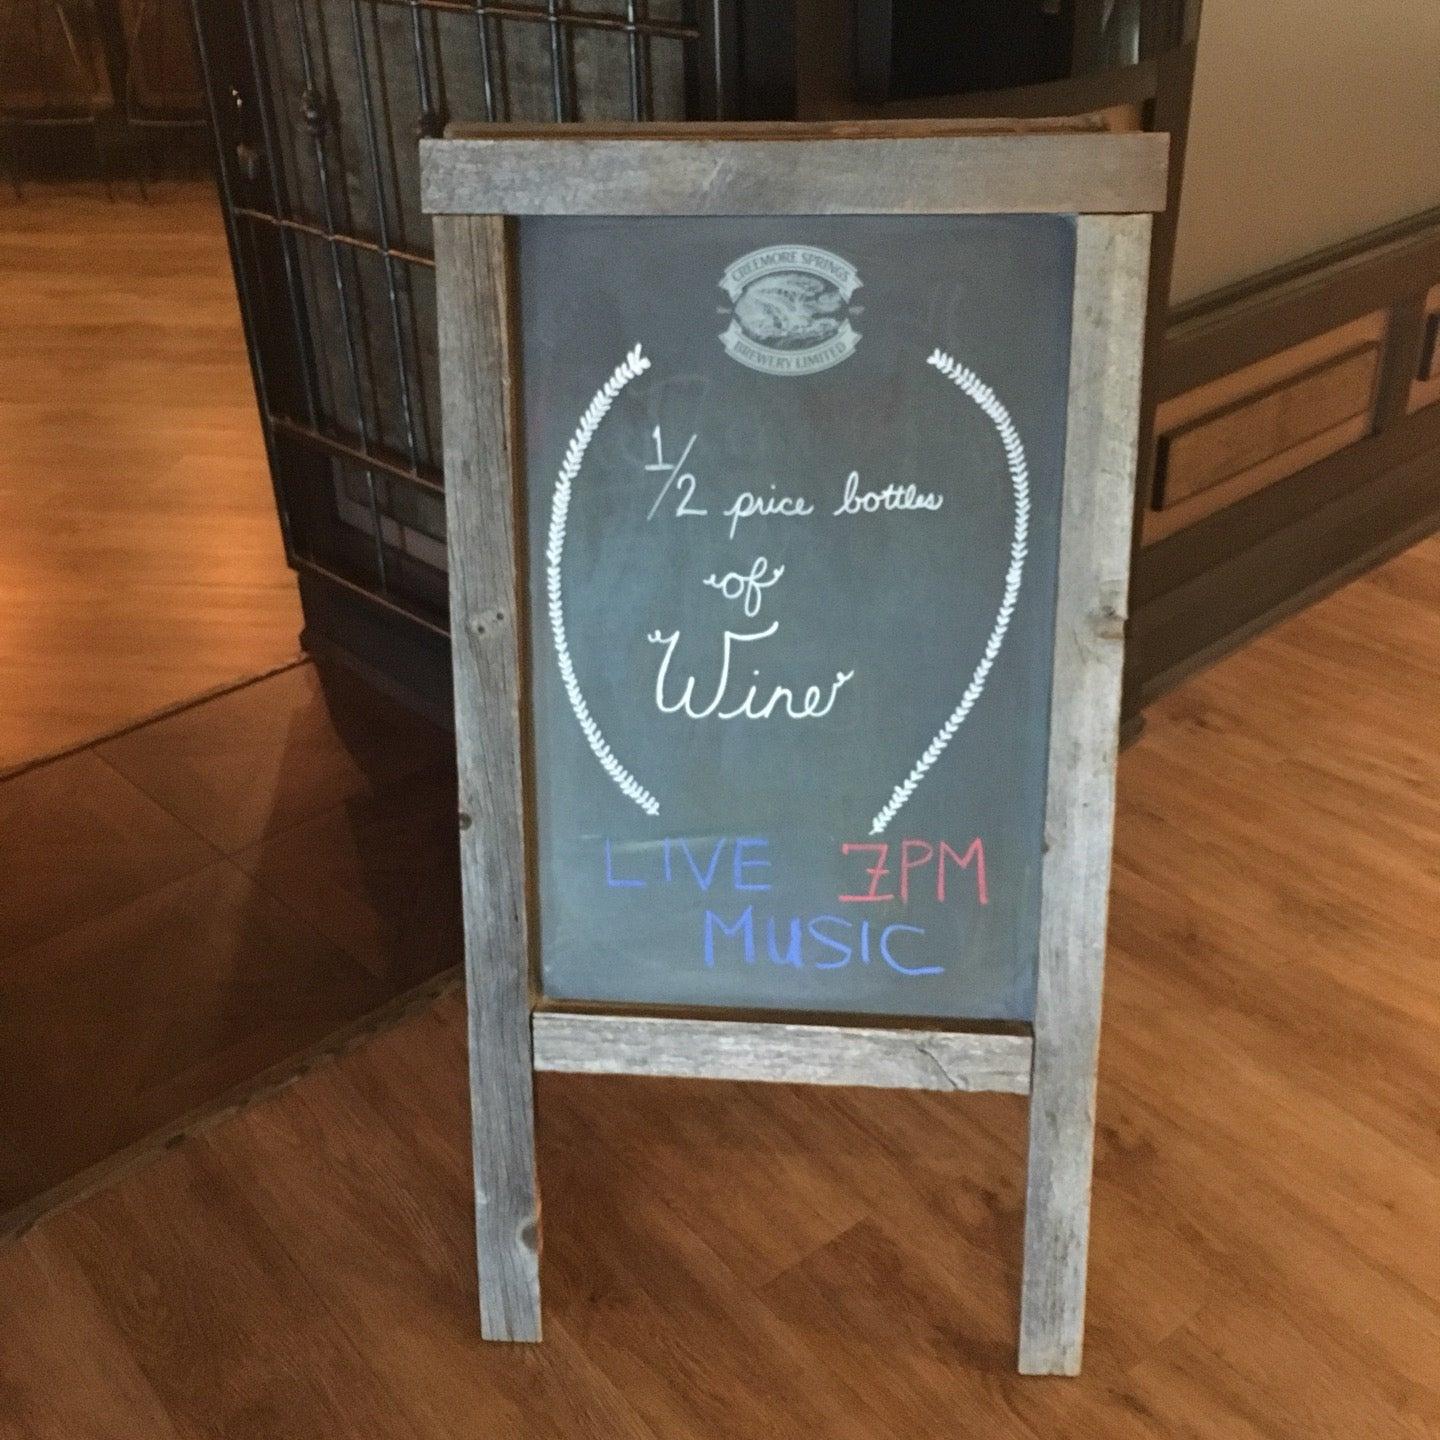 CREEMORE SPRINGS
BREWERY LIMITED
1/2 price bottles
of
Wine
LIVE 7PM
MUSIC